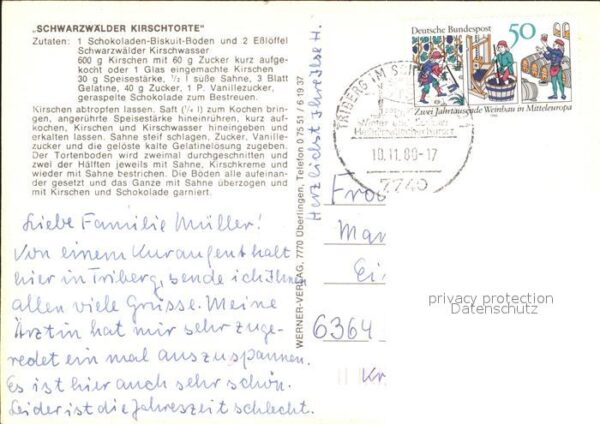 „SCHWARZWÄLDER KIRSCHTORTE“
Zutaten: 1 Schokoladen-Biskuit-Boden und 2 Eßlöffel
Schwarzwälder Kirschwasser
600 g Kirschen mit 60 g Zucker kurz aufge-
kocht oder 1 Glas eingemachte Kirschen
30 g Speisestärke, ½ l süße Sahne, 3 Blatt
Gelatine, 40 g Zucker, 1 P. Vanillezucker,
geraspelte Schokolade zum Bestreuen.
Kirschen abtropfen lassen. Saft (¼ l) zum Kochen brin-
gen, angerührte Speisestärke hineinrühren, kurz auf-
kochen, Kirschen und Kirschwasser hineingeben und
erkalten lassen. Sahne steif schlagen, Zucker, Vanille-
zucker und die gelöste kalte Gelatinelösung zugeben.
Der Tortenboden wird zweimal durchgeschnitten und
zwei der Hälften jeweils mit Sahne, Kirschkreme und
wieder mit Sahne bestrichen. Die Böden alle aufeinan-
der gesetzt und das Ganze mit Sahne überzogen und
mit Kirschen und Schokolade garniert.
Liebe Familie Müller!
Von einem Kuraufenthalt
hier in Triberg, sende ich Ihnen
allen viele Grüsse. Meine
Ärztin hat mir sehr zuge-
redet ein mal auszuspannen.
Es ist hier auch sehr schön.
Leider ist die Jahreszeit schlecht.
Herzlichst Ihre Ilse H.
WERNER-VERLAG, 7770 Überlingen, Telefon 0 75 51 / 6 19 37
Deutsche Bundespost
50
Zwei Jahrtausende Weinbau in Mitteleuropa
TRIBERG IM
10.11.80-17
7740
Fro
Ma
Ei
6364
Kr
privacy protection
Datenschutz